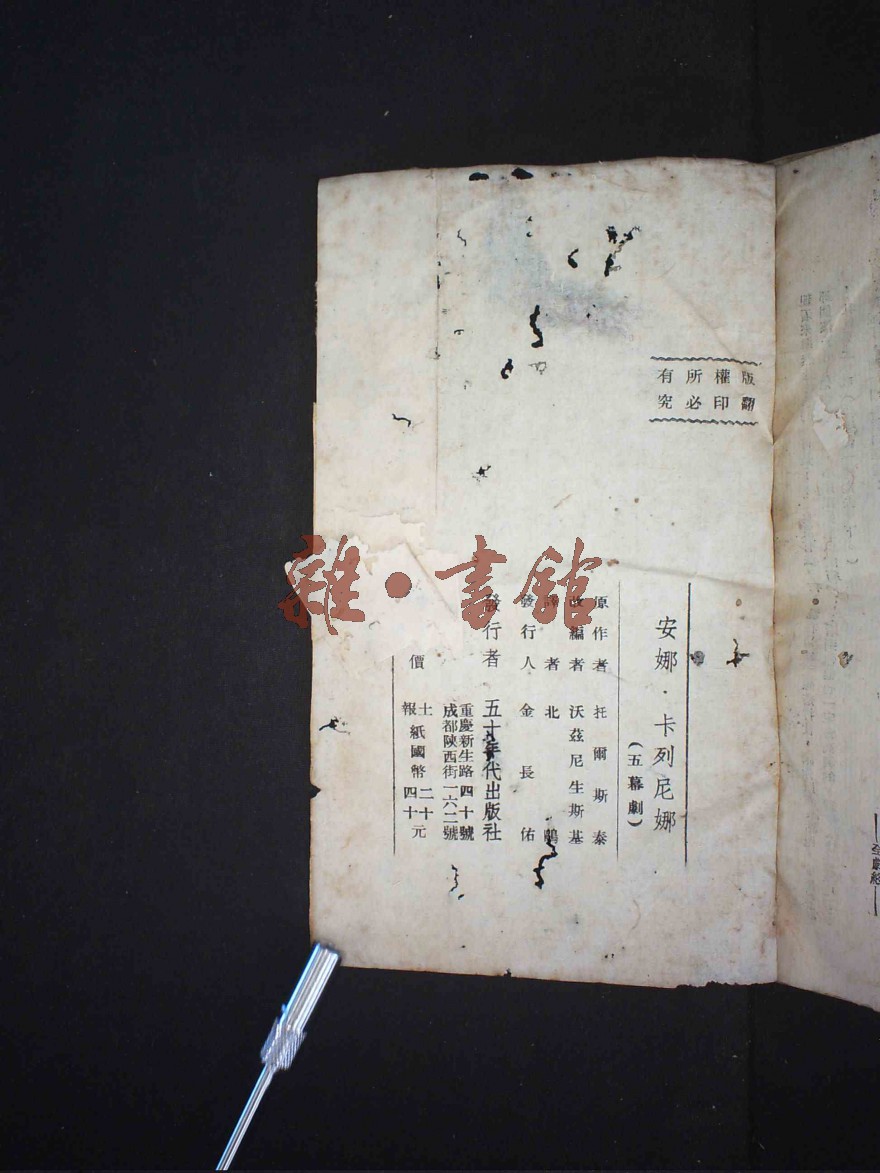 版權所有
翻印必究
安娜·卡列尼娜
(五幕劇)
原作者 托爾斯泰
改編者 沃茲尼生斯基
譯者 北鷗
發行人 金長佑
發行者 五十年代出版社
重慶新生路四十號
成都陝西街一六二號
價 土報紙國幣二十四十元
雜·書館
全劇終